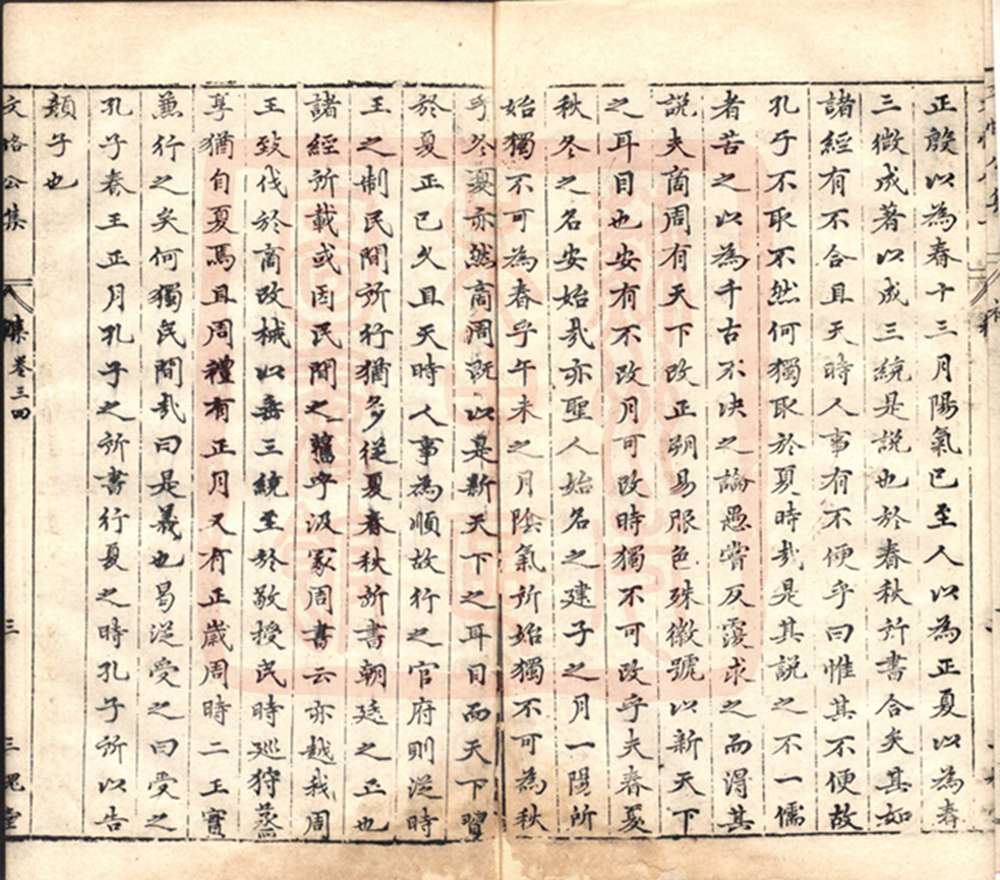 正殷以為春十三月陽氣已至人以為正夏以為春
三微成著以成三統是說也於春秋所書合矣其如
諸經有不合且天時人事有不便乎曰惟其不便故
孔子不取不然何獨取於夏時哉是其說之不一儒
者苦之以為千古不决之論愚嘗反覆求之而得其
說夫商周有天下改正朔易服色殊徽號以新天下
之耳目也安有不改月可改時獨不可改乎夫春夏
秋冬之名安始哉亦聖人始名之建子之月一陽所
始獨不可為春乎午未之月陰氣所始獨不可為秋
乎冬夏亦然商周既以是新天下之耳目而天下習
於夏正已久且天時人事為順故行之官府則從時
王之制民間所行猶多從夏春秋所書朝廷之正也
諸經所載或因民間之舊乎汲冢周書云亦越我周
王致伐於商改械以垂三統至於敬授民時巡狩蒸
享猶自夏焉且周禮有正月又有正歲周時二正實
兼行之矣何獨民間哉曰是義也曷從受之曰受之
孔子春王正月孔子之所書行夏之時孔子所以告
顏子也
文恪公集
集卷三四
三
三槐堂